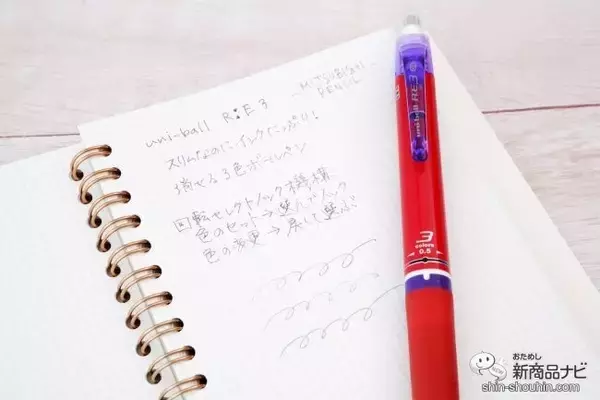 uni-ball R:E 3
MITSUBISHI
PENCIL
スリムなのにインクたっぷり!
消せる3色ボールペン
回転セレクトノック機構
色のセット→選んでノック
色の変更→戻して選ぶ
uni-ball R:E 3
3
colors
0.5
おためし
新商品ナビ
shin-shouhin.com